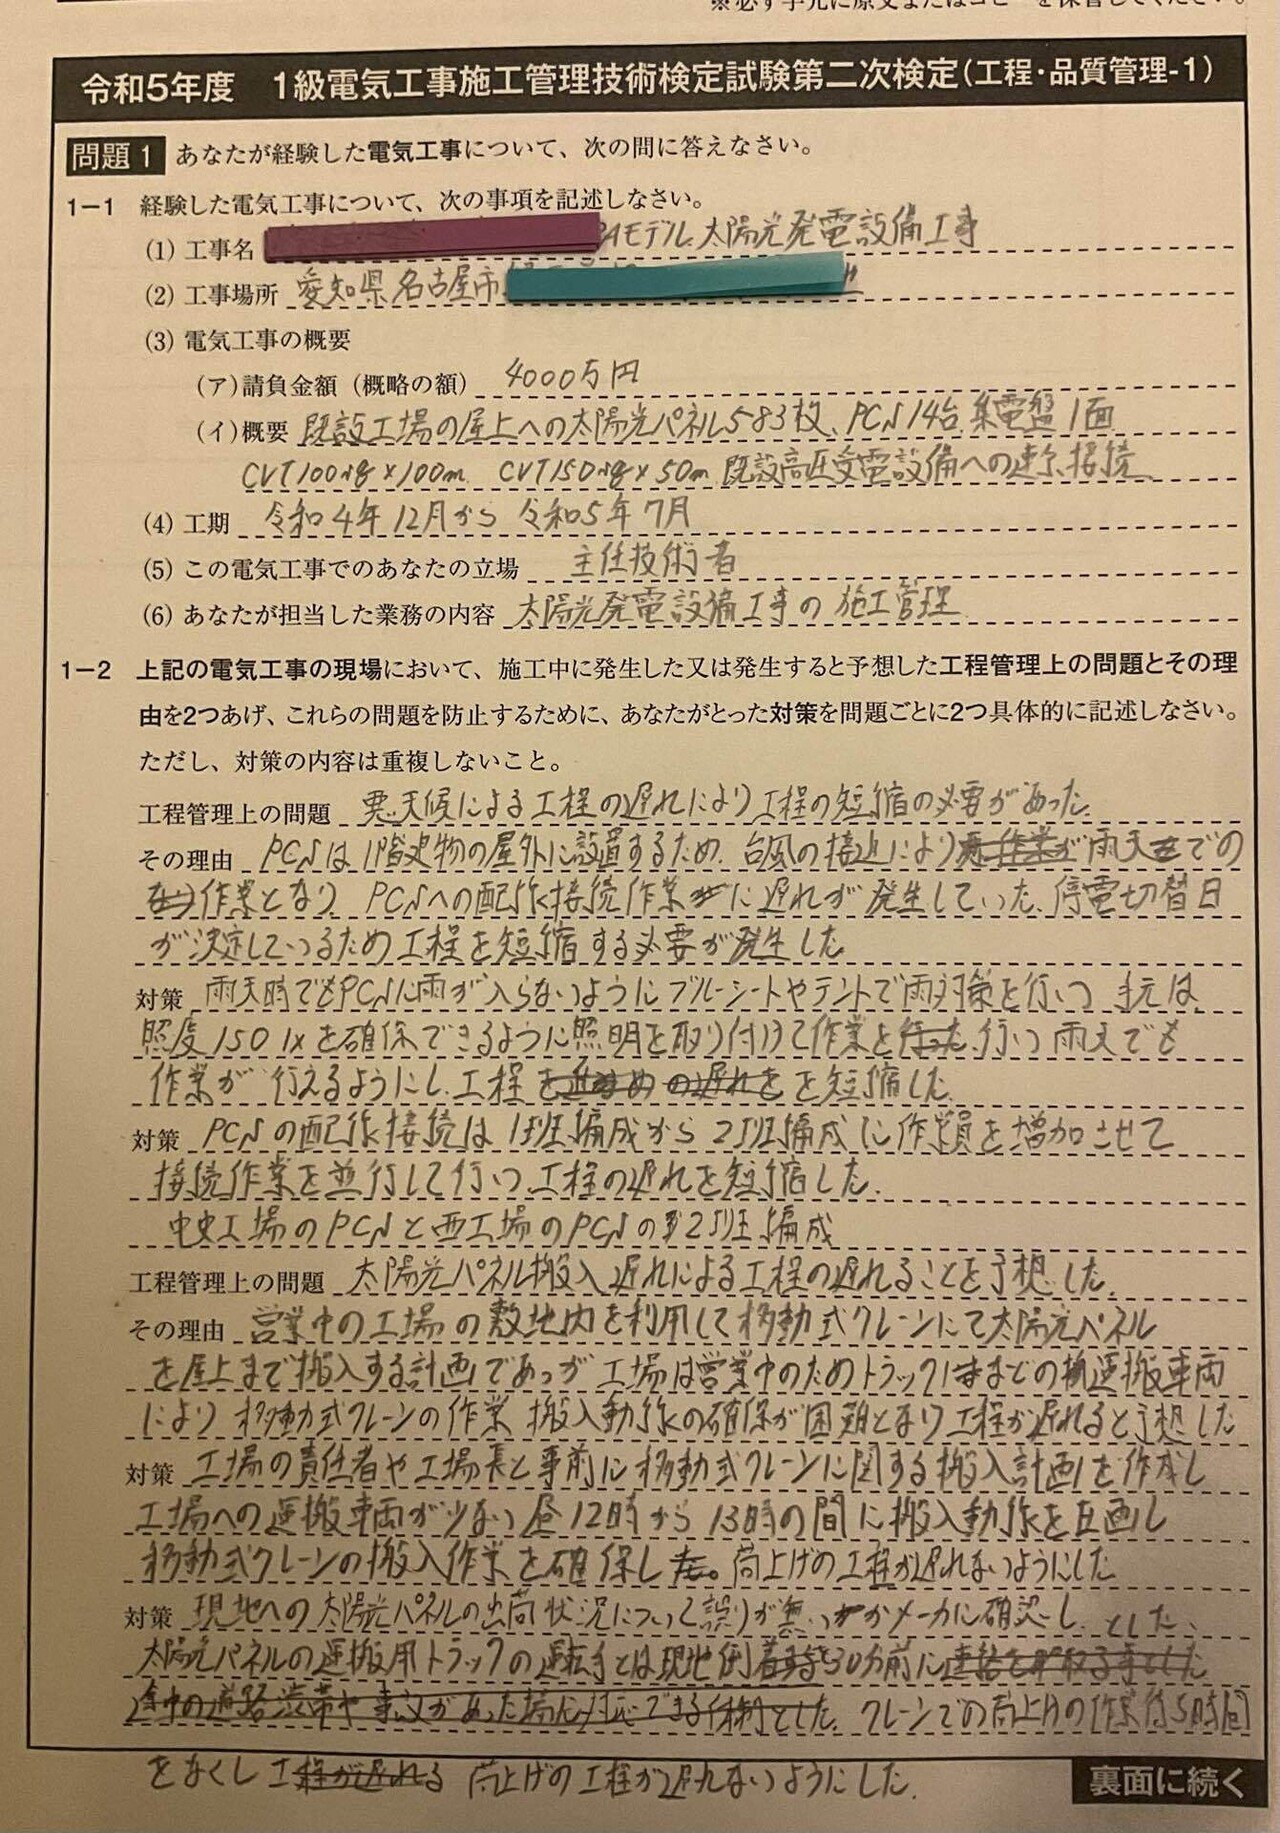 ※必ず手元に原文またはコピーを保管してください。
令和5年度 1級電気工事施工管理技術検定試験第二次検定(工程・品質管理-1)
問題1 あなたが経験した電気工事について、次の問に答えなさい。
1-1 経験した電気工事について、次の事項を記述しなさい。
(1) 工事名 Aモデル 太陽光発電設備工事
(2) 工事場所 愛知県名古屋市
(3) 電気工事の概要
(ア)請負金額(概略の額) 4000万円
(イ)概要 既設工場の屋上への太陽光パネル583枚、PCS14台 集電盤1面
CVT100sq×100m CVT150sq×50m 既設高圧受電設備への連系接続
(4) 工期 令和4年12月から 令和5年7月
(5) この電気工事でのあなたの立場 主任技術者
(6) あなたが担当した業務の内容 太陽光発電設備工事の施工管理
1-2 上記の電気工事の現場において、施工中に発生した又は発生すると予想した工程管理上の問題とその理
由を2つあげ、これらの問題を防止するために、あなたがとった対策を問題ごとに2つ具体的に記述しなさい。
ただし、対策の内容は重複しないこと。
工程管理上の問題 悪天候による工程の遅れにより工程の短縮の必要があった.
その理由 PCSは1階建物の屋外に設置するため、台風の接近により 雨天での
作業となり PCSへの配線接続作業に遅れが発生していた、停電切替日
が決定しているため工程を短縮する必要が発生した
対策 雨天時でもPCSに雨が入らないようにブルーシートやテントで雨対策を行い 手元は
照度150lxを確保できるように照明を取り付けて作業を行った 行い 雨天でも
作業が行えるようにし、工程を短縮した.
対策 PCSの配線接続は1班編成から2班編成に作業員を増加させて
接続作業を並行して行い 工程の遅れを短縮した.
中央工場のPCSと西工場のPCSの2班編成
工程管理上の問題 太陽光パネル搬入遅れによる工程の遅れることを予想した.
その理由 営業中の工場の敷地内を利用して移動式クレーンにて太陽光パネル
を屋上まで搬入する計画であったが 工場は営業中のためトラックなどの運搬車両
により 移動式クレーンの作業 搬入動線の確保が困難となり工程が遅れると予想した
対策 工場の責任者や工場長と事前に移動式クレーンに関する搬入計画を作成し
工場への運搬車両が少ない昼12時から13時の間に搬入動線を計画し
移動式クレーンの搬入作業を確保した。荷上げの工程が遅れないようにした
対策 現地への太陽光パネルの出荷状況について誤りが無いかメーカに確認し とした、
太陽光パネルの運搬用トラックの運転手とは現地到着時を30分前に連絡を取る事とした
途中の道路渋滞や事故があった場合対応できる体制とした. クレーンでの荷上げの作業待ち時間
をなくし工程が遅れる 荷上げの工程が遅れないようにした.
裏面に続く